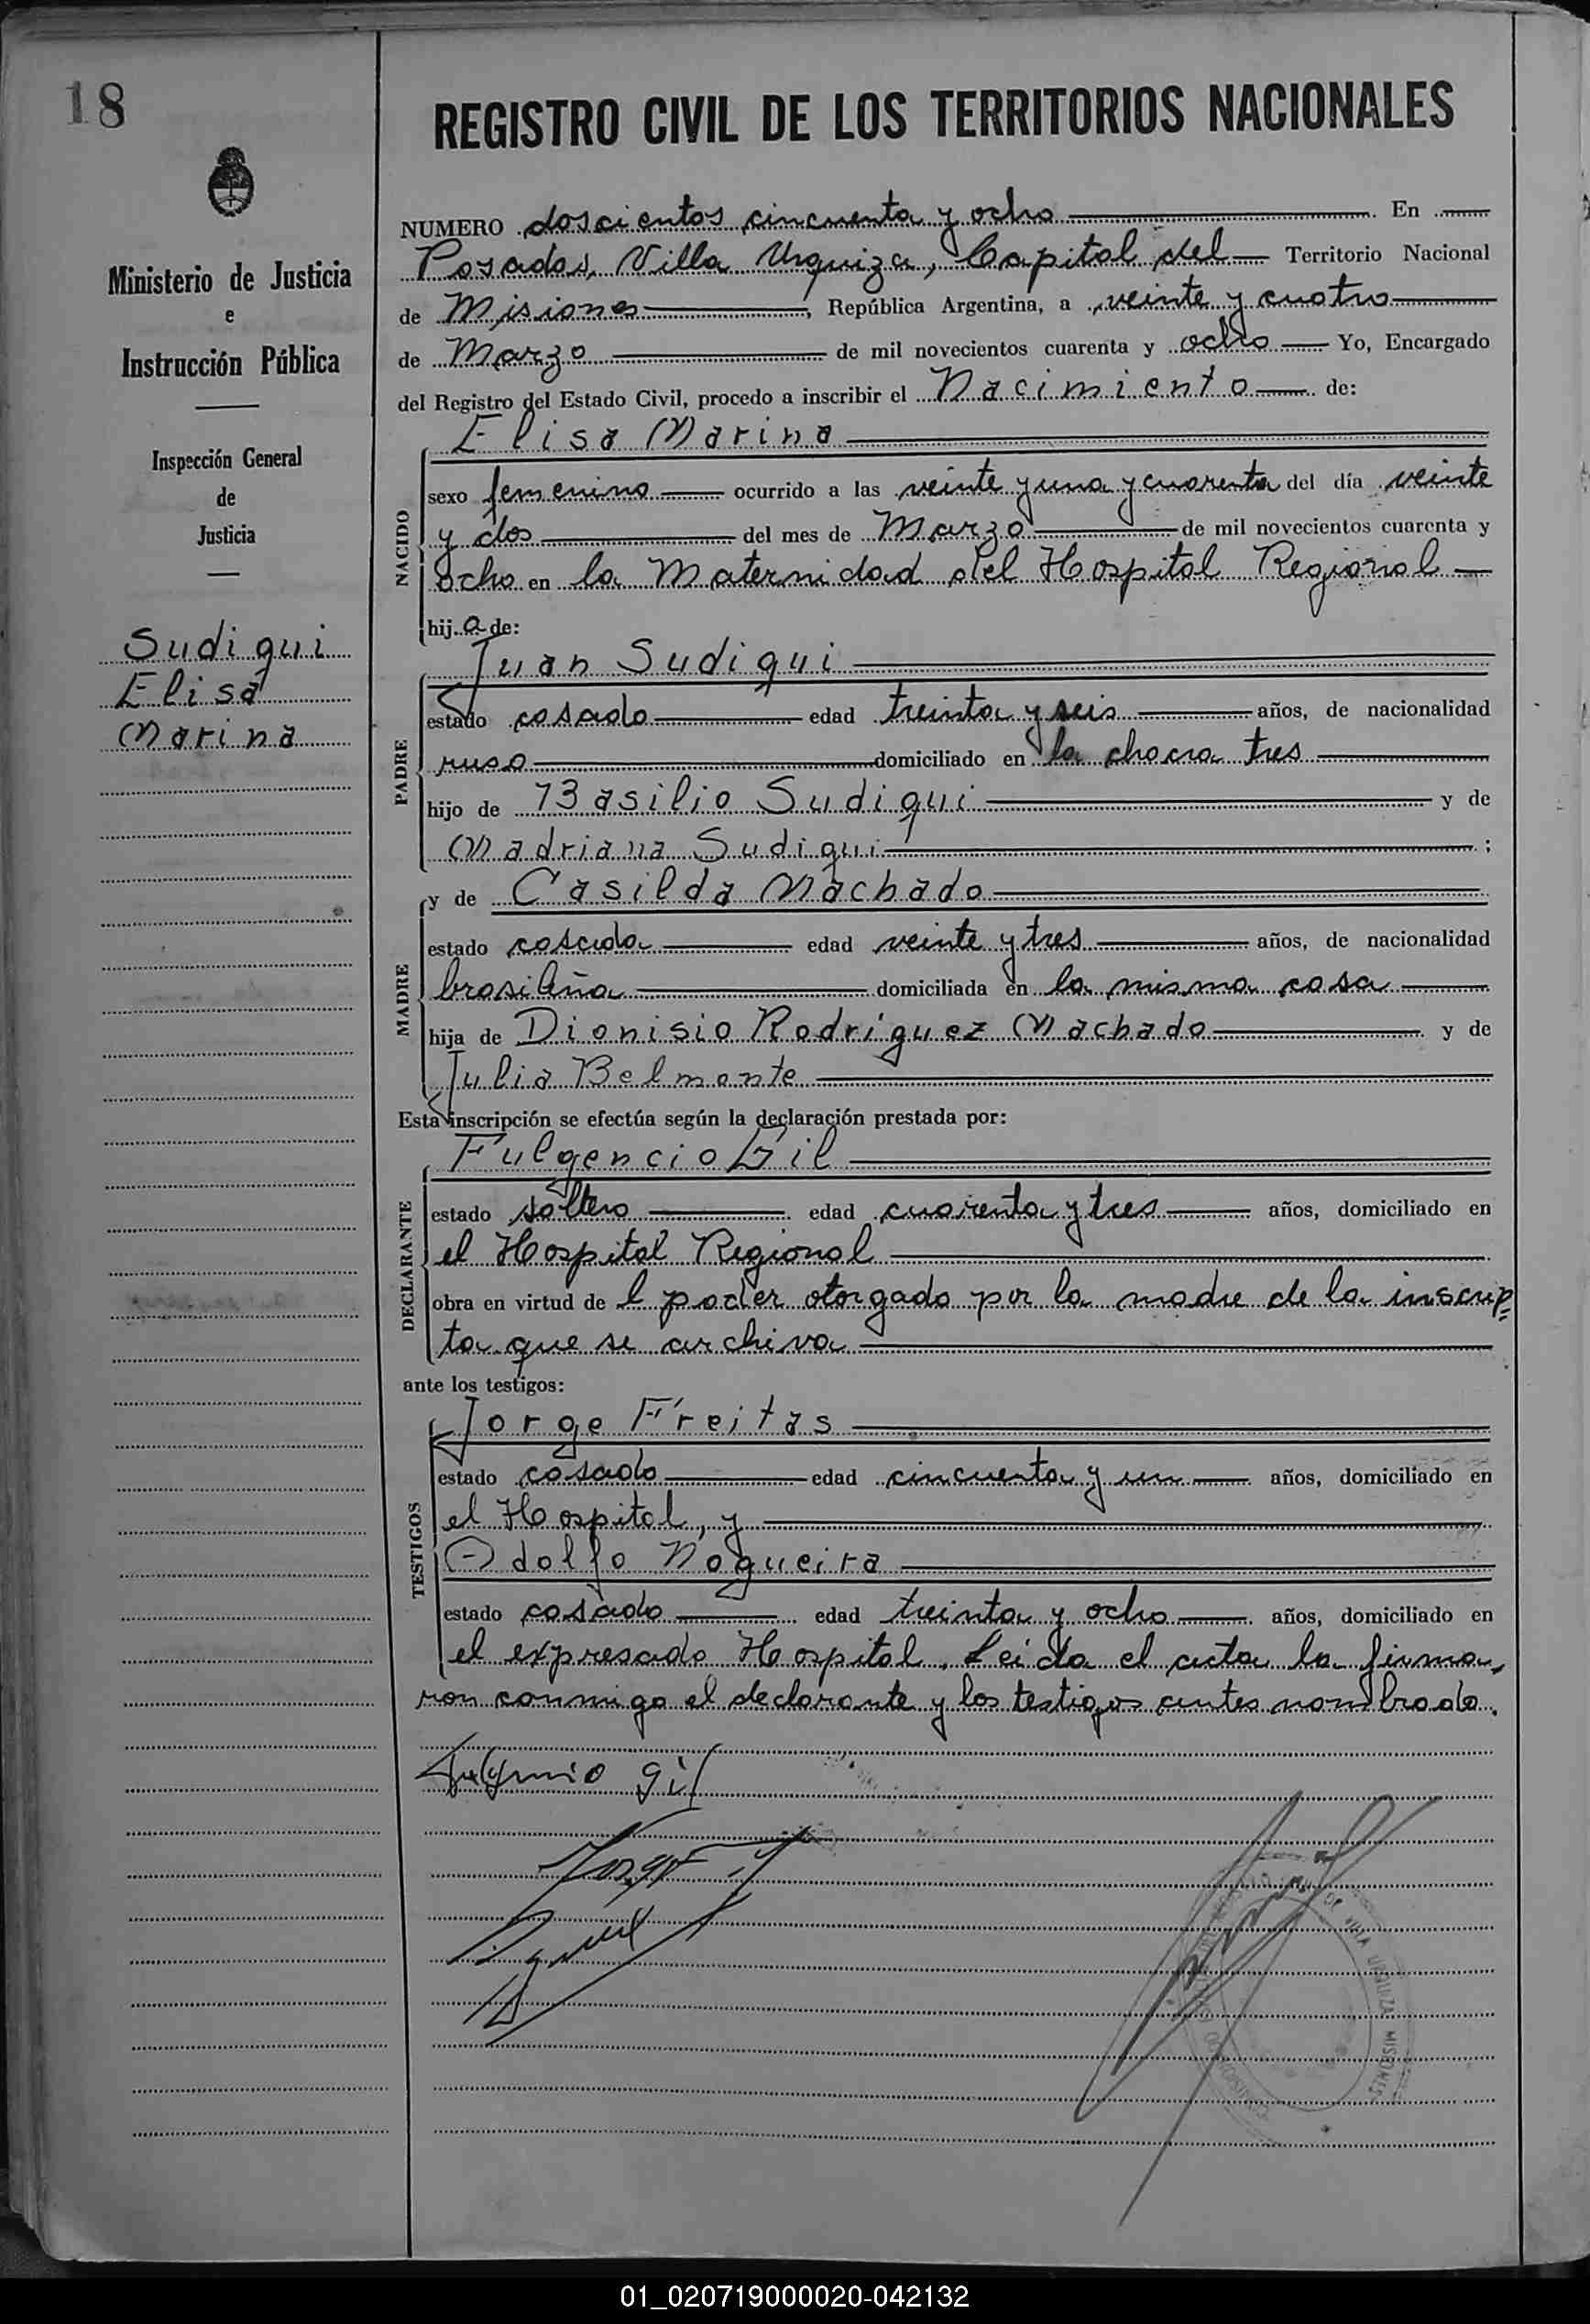 18
REGISTRO CIVIL DE LOS TERRITORIOS NACIONALES
Ministerio de Justicia
e
Instrucción Pública
Inspección General
de
Justicia
Sudiqui
Elisa
Marina
NUMERO doscientos cincuenta y ocho En
Posadas, Villa Urquiza, Capital del Territorio Nacional
de Misiones, República Argentina, a veinte y cuatro
de Marzo de mil novecientos cuarenta y ocho Yo, Encargado
del Registro del Estado Civil, procedo a inscribir el Nacimiento de:
Elisa Marina
NACIDO
sexo femenino ocurrido a las veinte y una y cuarenta del día veinte
y dos del mes de Marzo de mil novecientos cuarenta y
ocho en la Maternidad del Hospital Regional
hija de:
Juan Sudiqui
PADRE
estado casado edad treinta y seis años, de nacionalidad
ruso domiciliado en la chacra tres
hijo de Basilio Sudiqui y de
Madriana Sudiqui ;
y de Casilda Machado
MADRE
estado casada edad veinte y tres años, de nacionalidad
brasileña domiciliada en la misma casa
hija de Dionisio Rodríguez Machado y de
Julia Belmonte
Esta inscripción se efectúa según la declaración prestada por:
Fulgencio Gil
DECLARANTE
estado soltero edad cuarenta y tres años, domiciliado en
el Hospital Regional
obra en virtud de l poder otorgado por la madre de la inscrip=
ta que se archiva
ante los testigos:
Jorge Freitas
TESTIGOS
estado casado edad cincuenta y un años, domiciliado en
el Hospital, y
Adolfo Nogueira
estado casado edad treinta y ocho años, domiciliado en
el expresado Hospital. Leida el acta la firma-
ron conmigo el declarante y los testigos antes nombrado.
Fulgencio Gil
DE VILLA URQUIZA MISIONES
01_020719000020-042132